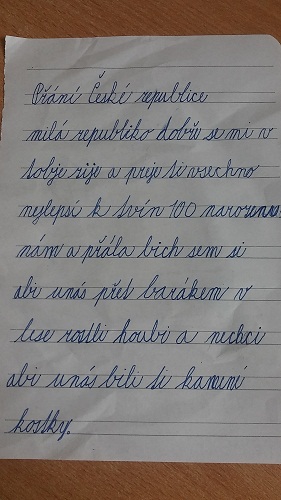 Přání České republice
milá republiko dobře se mi v
tobje žije a preje ti vsechno
nejlepsí k tvín 100 narozenu
nám a přála bich sem si
abi unás před barákem v
lese rostli houbi a nechci
abi unás bili ti kamení
kostky.